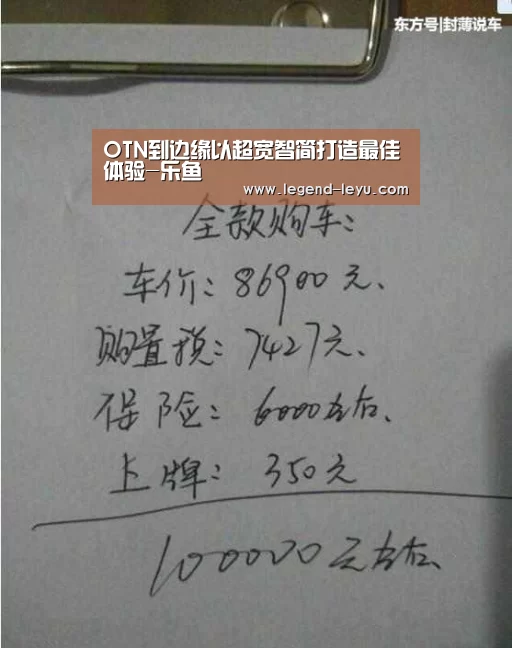 东方号|封薄说车
OTN到边缘以超宽智简打造最佳
体验-乐鱼
www.legend-leyu.com
全款购车:
车价: 86900元、
购置税: 7427元、
保险: 6000左右、
上牌: 350元
100000元左右